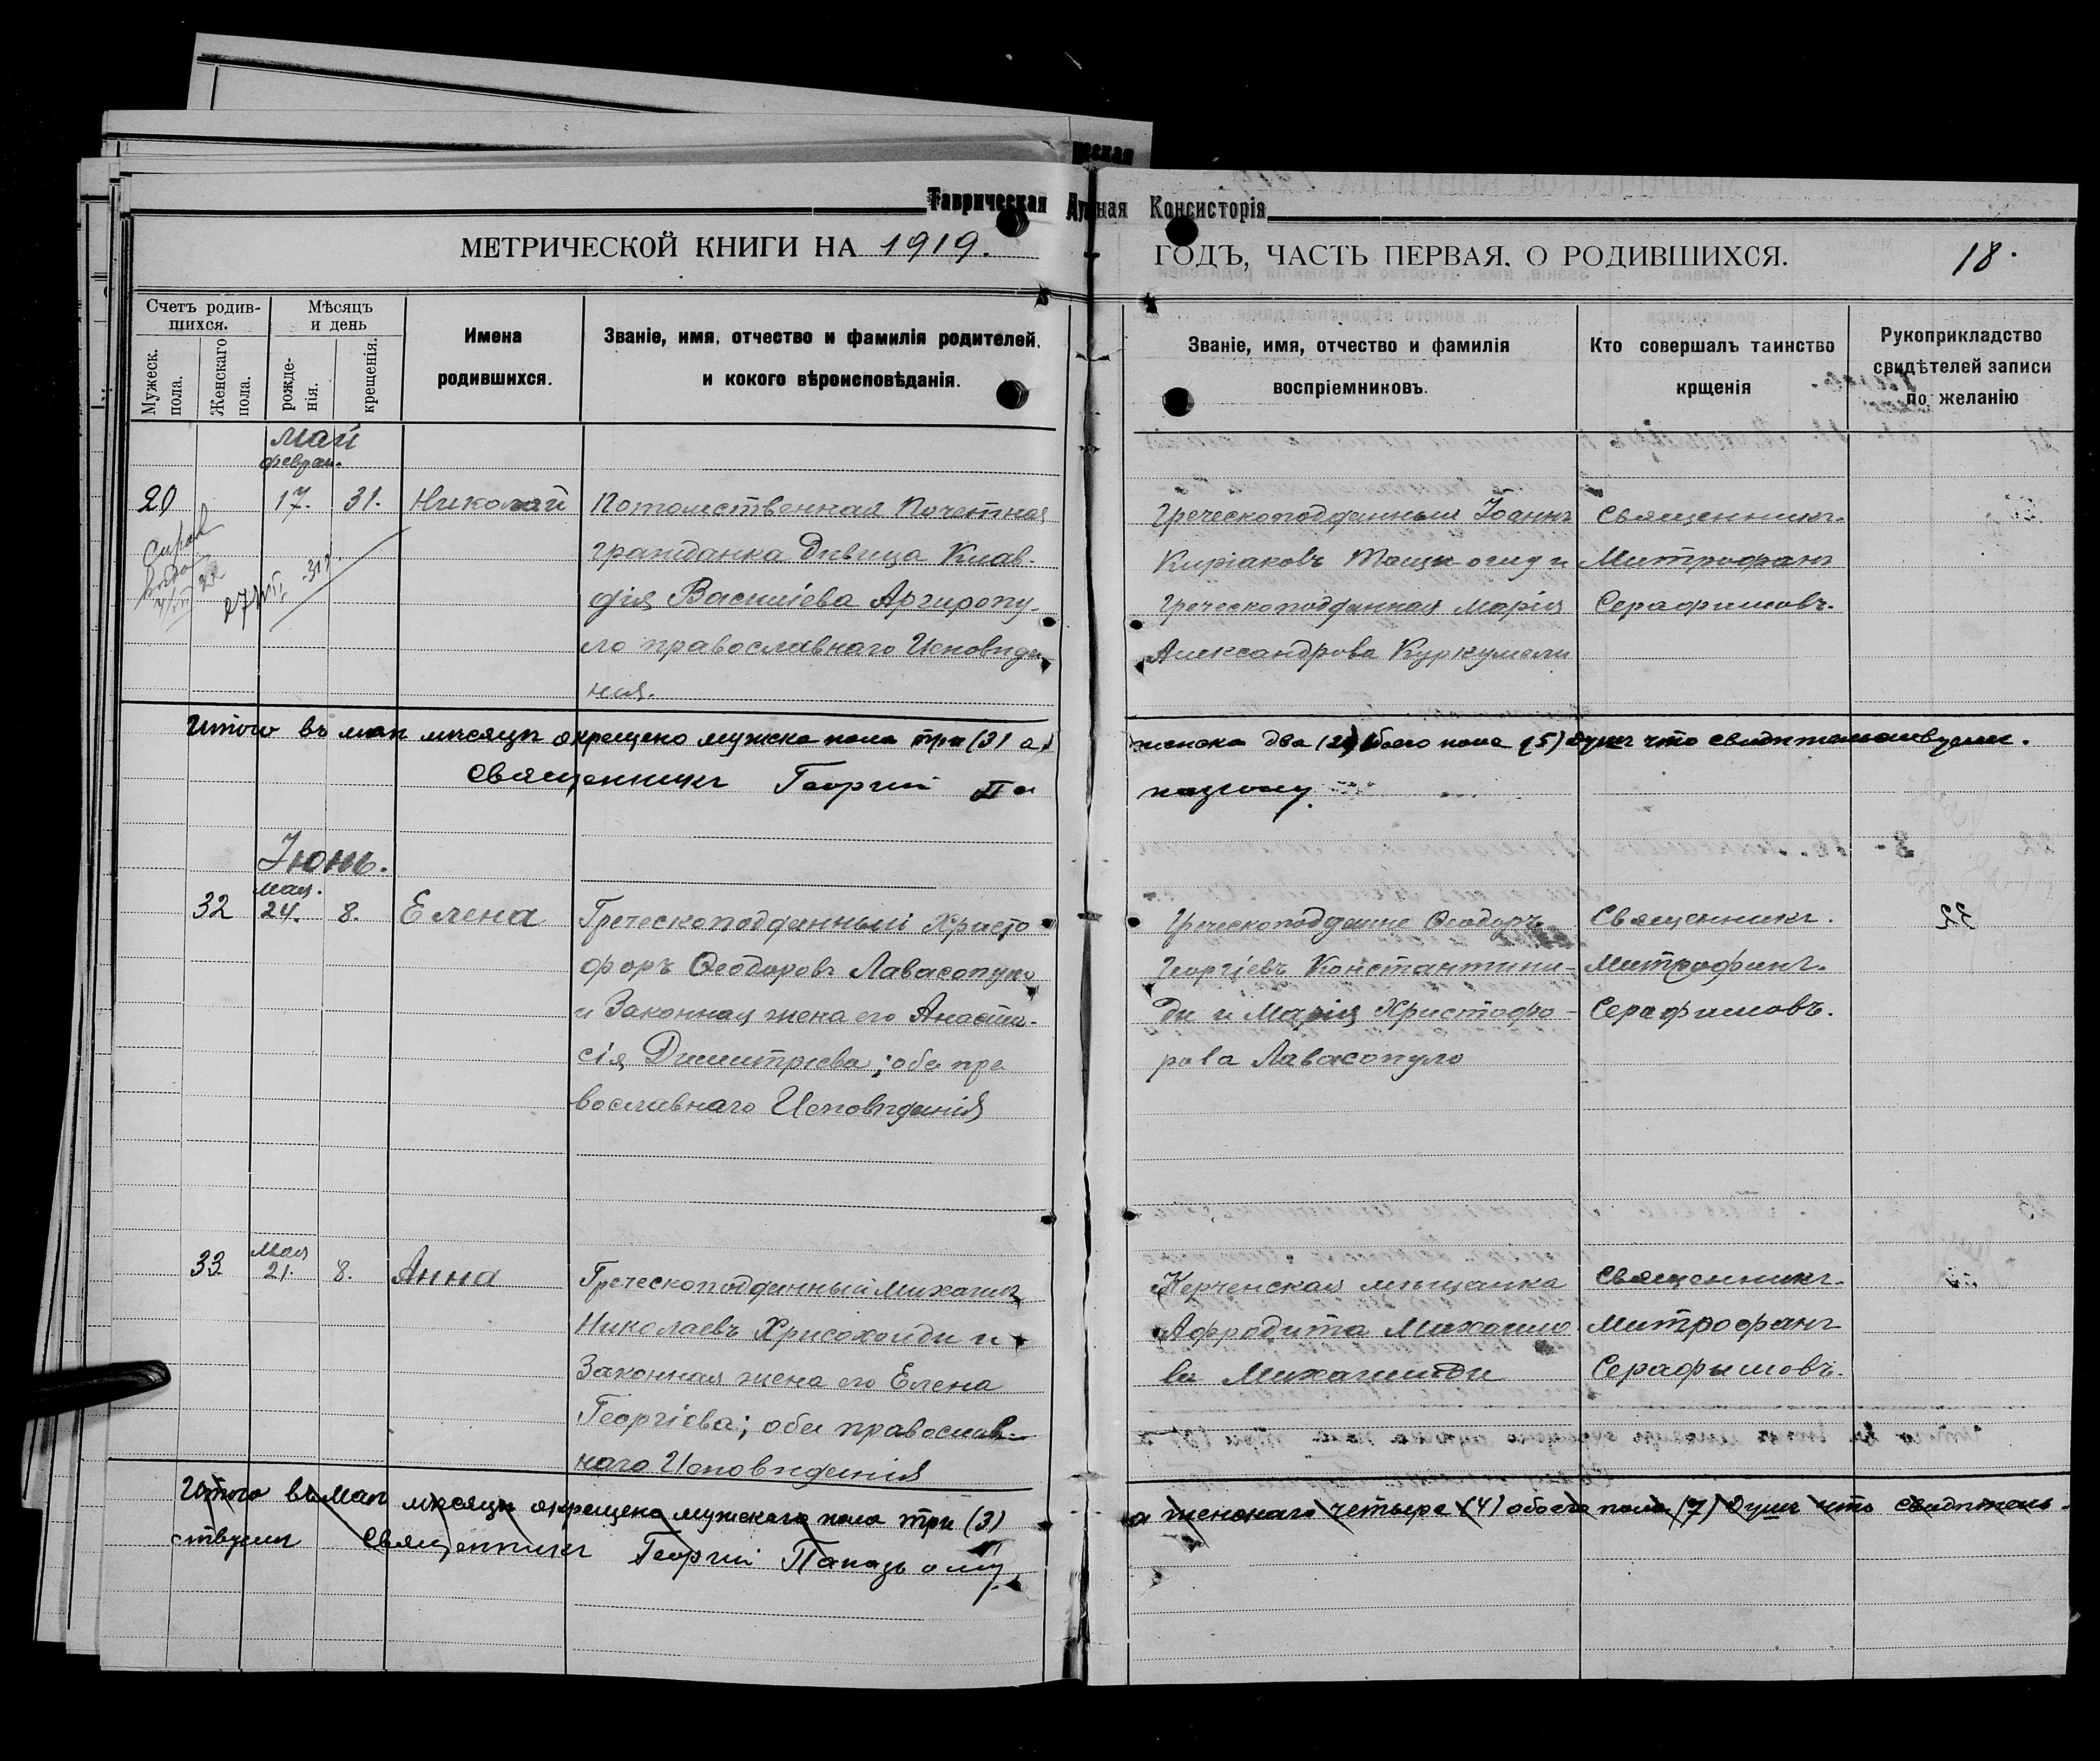 Таврическая Консисторія
МЕТРИЧЕСКОЙ КНИГИ НА 1919. ГОДЪ, ЧАСТЬ ПЕРВАЯ, О РОДИВШИХСЯ. 18.
Счетъ родив-
шихся.
Мужеск.
пола.
Женскаго
пола.
Мѣсяцъ
и день
рожде-
нія.
крещенія.
Имена
родившихся.
Званіе, имя, отчество и фамилія родителей,
и кокого вѣроисповѣданія.
Званіе, имя, отчество и фамилія
воспріемниковъ.
Кто совершалъ таинство
крщенія
Рукоприкладство
свидѣтелей записи
по желанію
Май
феврал.
20 17. 31. Николай
Потомственная Почетная
гражданка дѣвица Клав-
дія Василіева Аргиропу-
ло православнаго Исповѣда
нія.
Греческоподданный Іоаннъ
Киріаковъ
Греческоподданная Марія
Александрова Куркумели
Священникъ
Митрофанъ
Серафимовъ.
Итого въ маѣ мѣсяцѣ окрещено мужска пола три (3) а женска два (2) обоего пола (5) душъ что свидѣтельствуемъ.
Священникъ Георгій Па
Іюнь.
мая.
32 24. 8. Елена
Греческоподданный Христо
форъ Ѳеодоровъ Лавасопуло
и Законная жена его Анаста-
сія Димитріева; оба пра
вославнаго Исповѣданія
Греческоподданные Ѳеодоръ
Георгіевъ Константини-
ди и Марія Христофо-
рова Лавасопуло
Священникъ.
Митрофанъ.
Серафимовъ.
мая
33 21. 8. Анна
Греческоподданный Михаилъ
Николаевъ Хрисохоиди и
Законная жена его Елена
Георгіева; оба православ-
наго Исповѣданія
Керченская мѣщанка
Афродита Михаило
ва Михаилиди
Священникъ.
Митрофанъ
Серафимовъ.
Итого въ маѣ мѣсяцѣ окрещено мужскаго пола три (3) а женскаго четыре (4) обоего пола (7) душъ что свидѣтель-
ствуемъ Священникъ Георгій Папазъ оглу